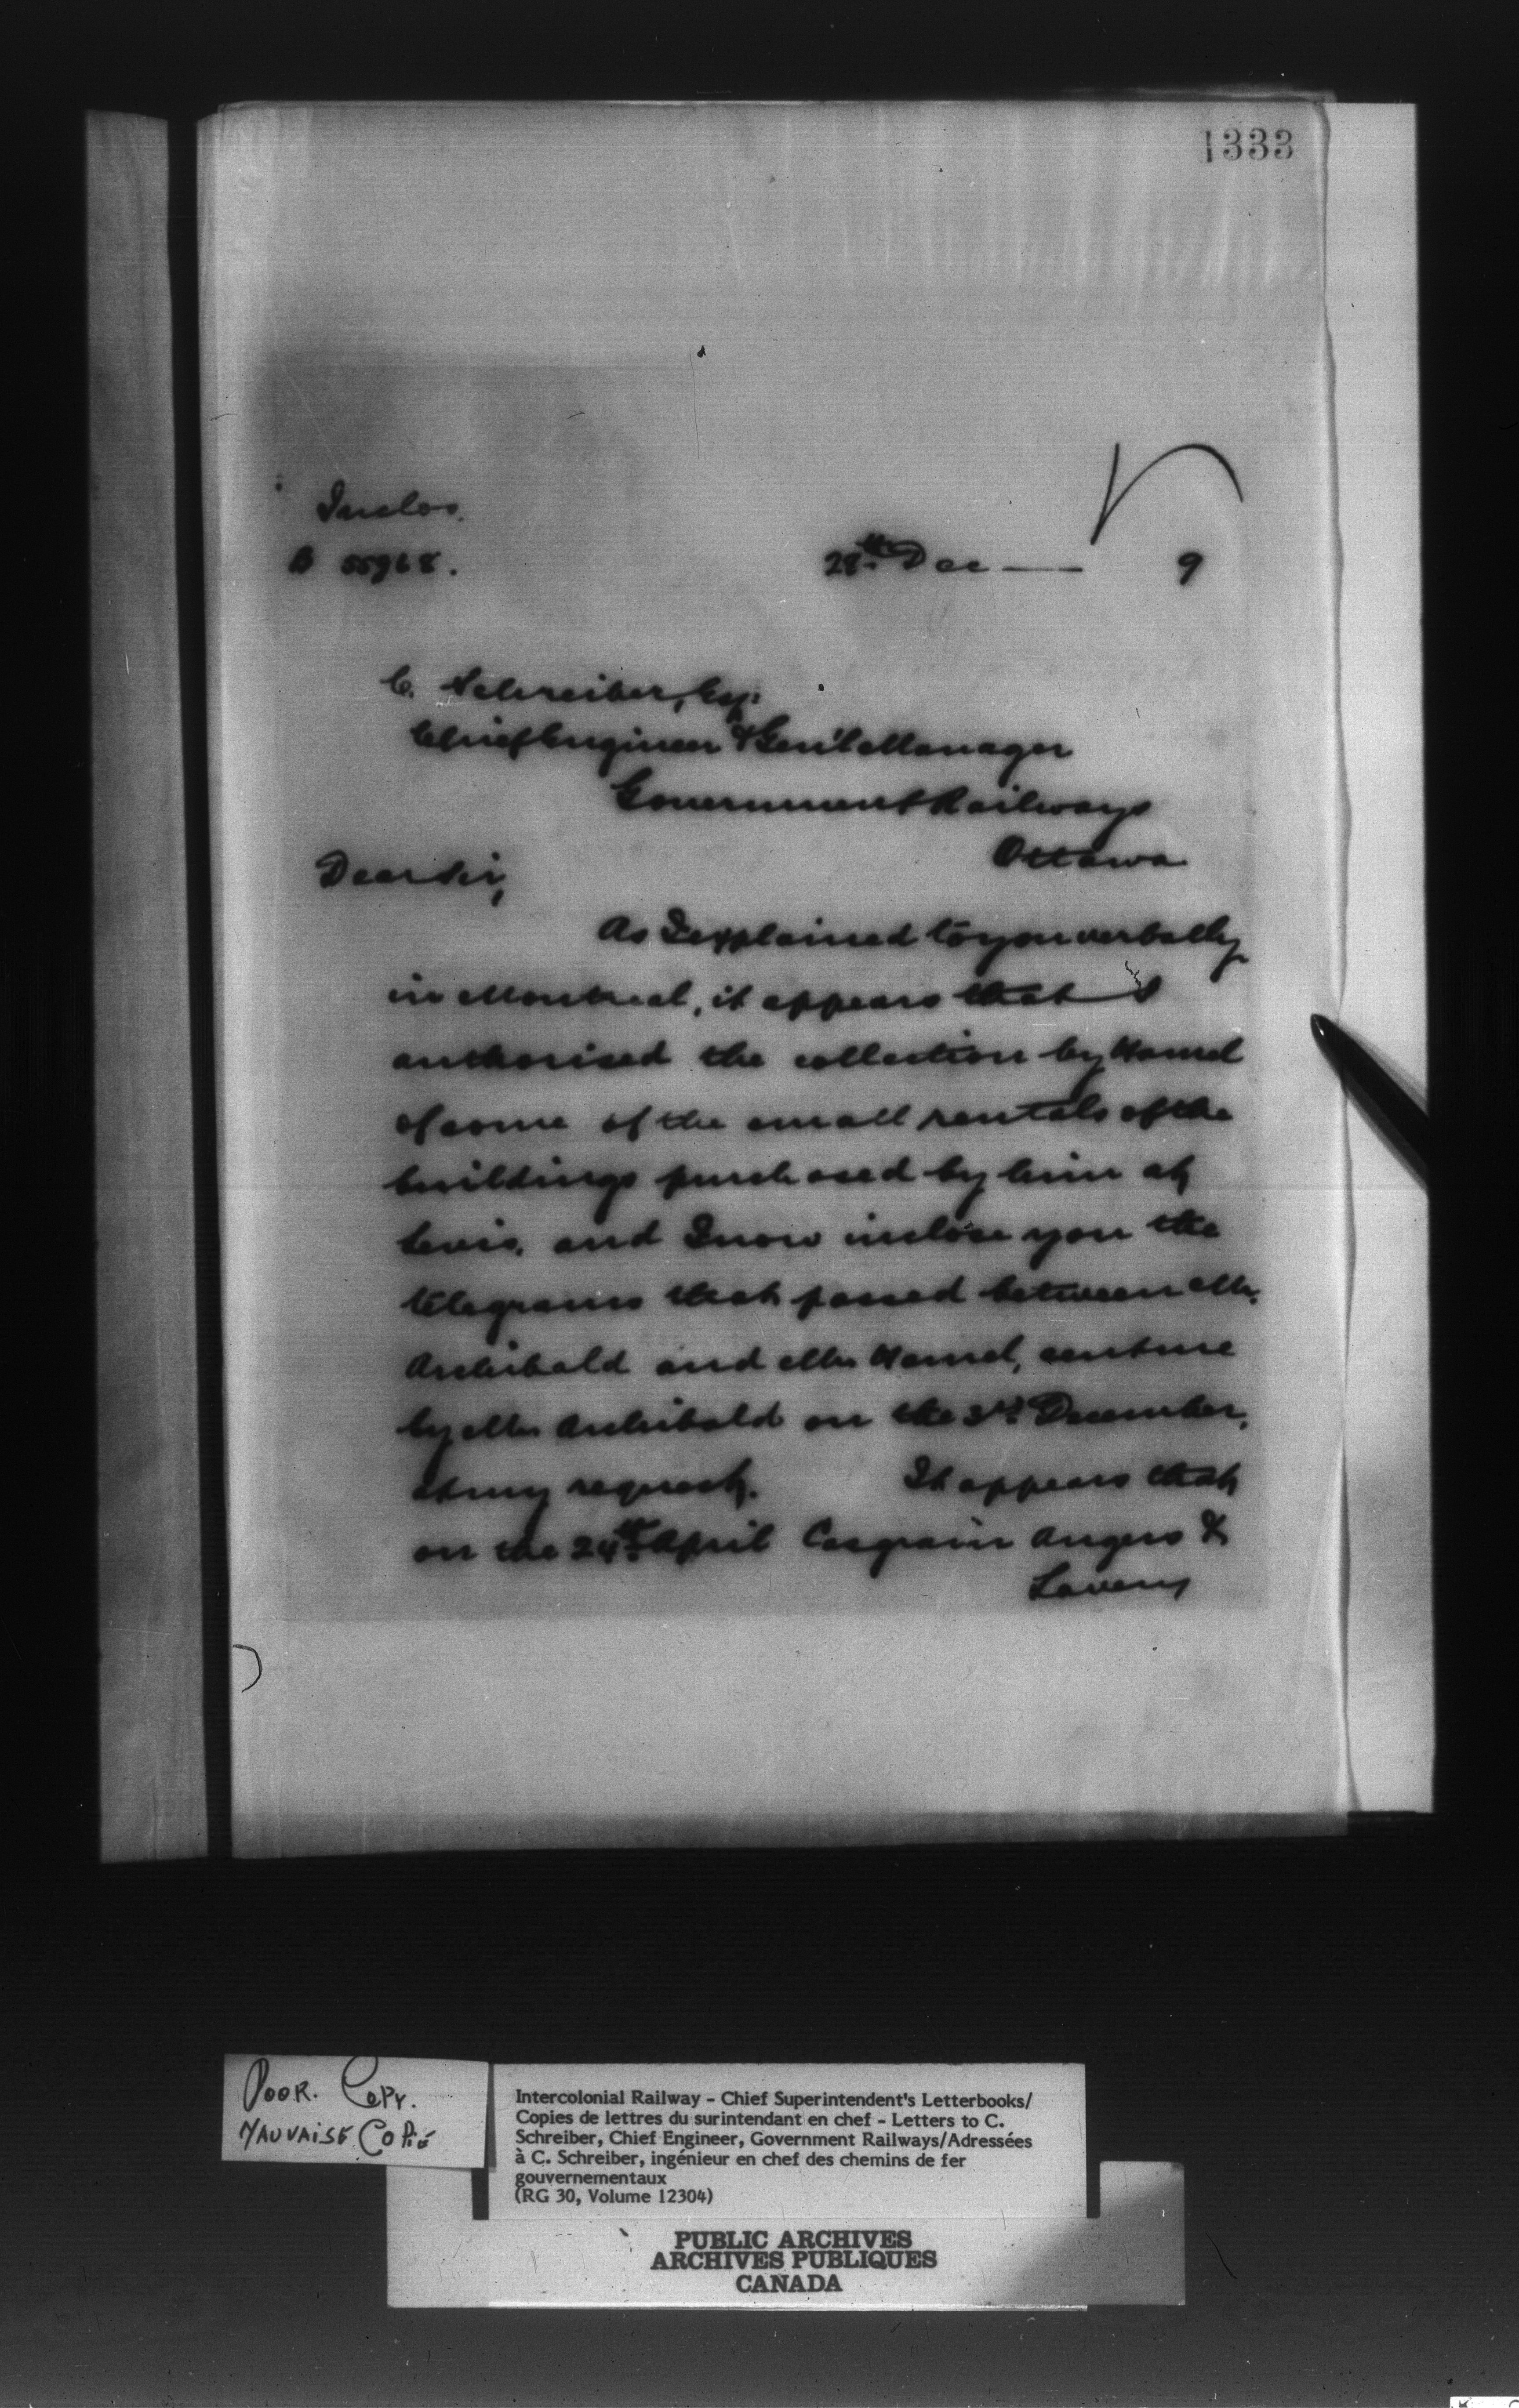 1333
Inclos.
B 55968.
28th Dec — 9
C. Schreiber, Esq:
Chief Engineer & Gen'l Manager
Government Railways
Ottawa
Dear Sir,
As I explained to you verbally
in Montreal, it appears that I
authorised the collection by Hamel
of some of the small rentals of the
buildings purchased by him at
Levis, and I now inclose you the
telegrams that passed between Mr.
Archibald and Mr Hamel, sent me
by Mr Archibald on the 3rd December,
at my request. It appears that
on the 24th April Casgrain Angers &
Lavery
POOR. COPY.
MAUVAISE COPIE
Intercolonial Railway - Chief Superintendent's Letterbooks/
Copies de lettres du surintendant en chef - Letters to C.
Schreiber, Chief Engineer, Government Railways/Adressées
à C. Schreiber, ingénieur en chef des chemins de fer
gouvernementaux
(RG 30, Volume 12304)
PUBLIC ARCHIVES
ARCHIVES PUBLIQUES
CANADA